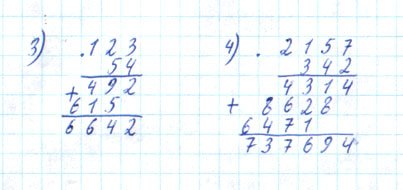 3) . 1 2 3
5 4
+ 4 9 2
6 1 5
6 6 4 2
4) . 2 1 5 7
3 4 2
4 3 1 4
+ 8 6 2 8
6 4 7 1
7 3 7 6 9 4